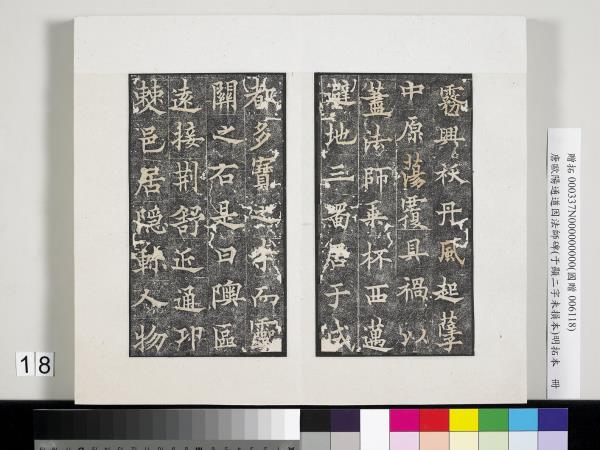 霧興祅丹風起孽
中原蕩覆具禍以
藎法師乘杯西邁
避地三蜀居于成
都多寶之寺而靈
關之右是曰隩區
遠接荊舒近通邛
僰邑居隱軫人物
贈拓 000337N000000000(國贈 006118)
唐歐陽通道因法師碑(于顯二字未損本)明拓本 冊
18